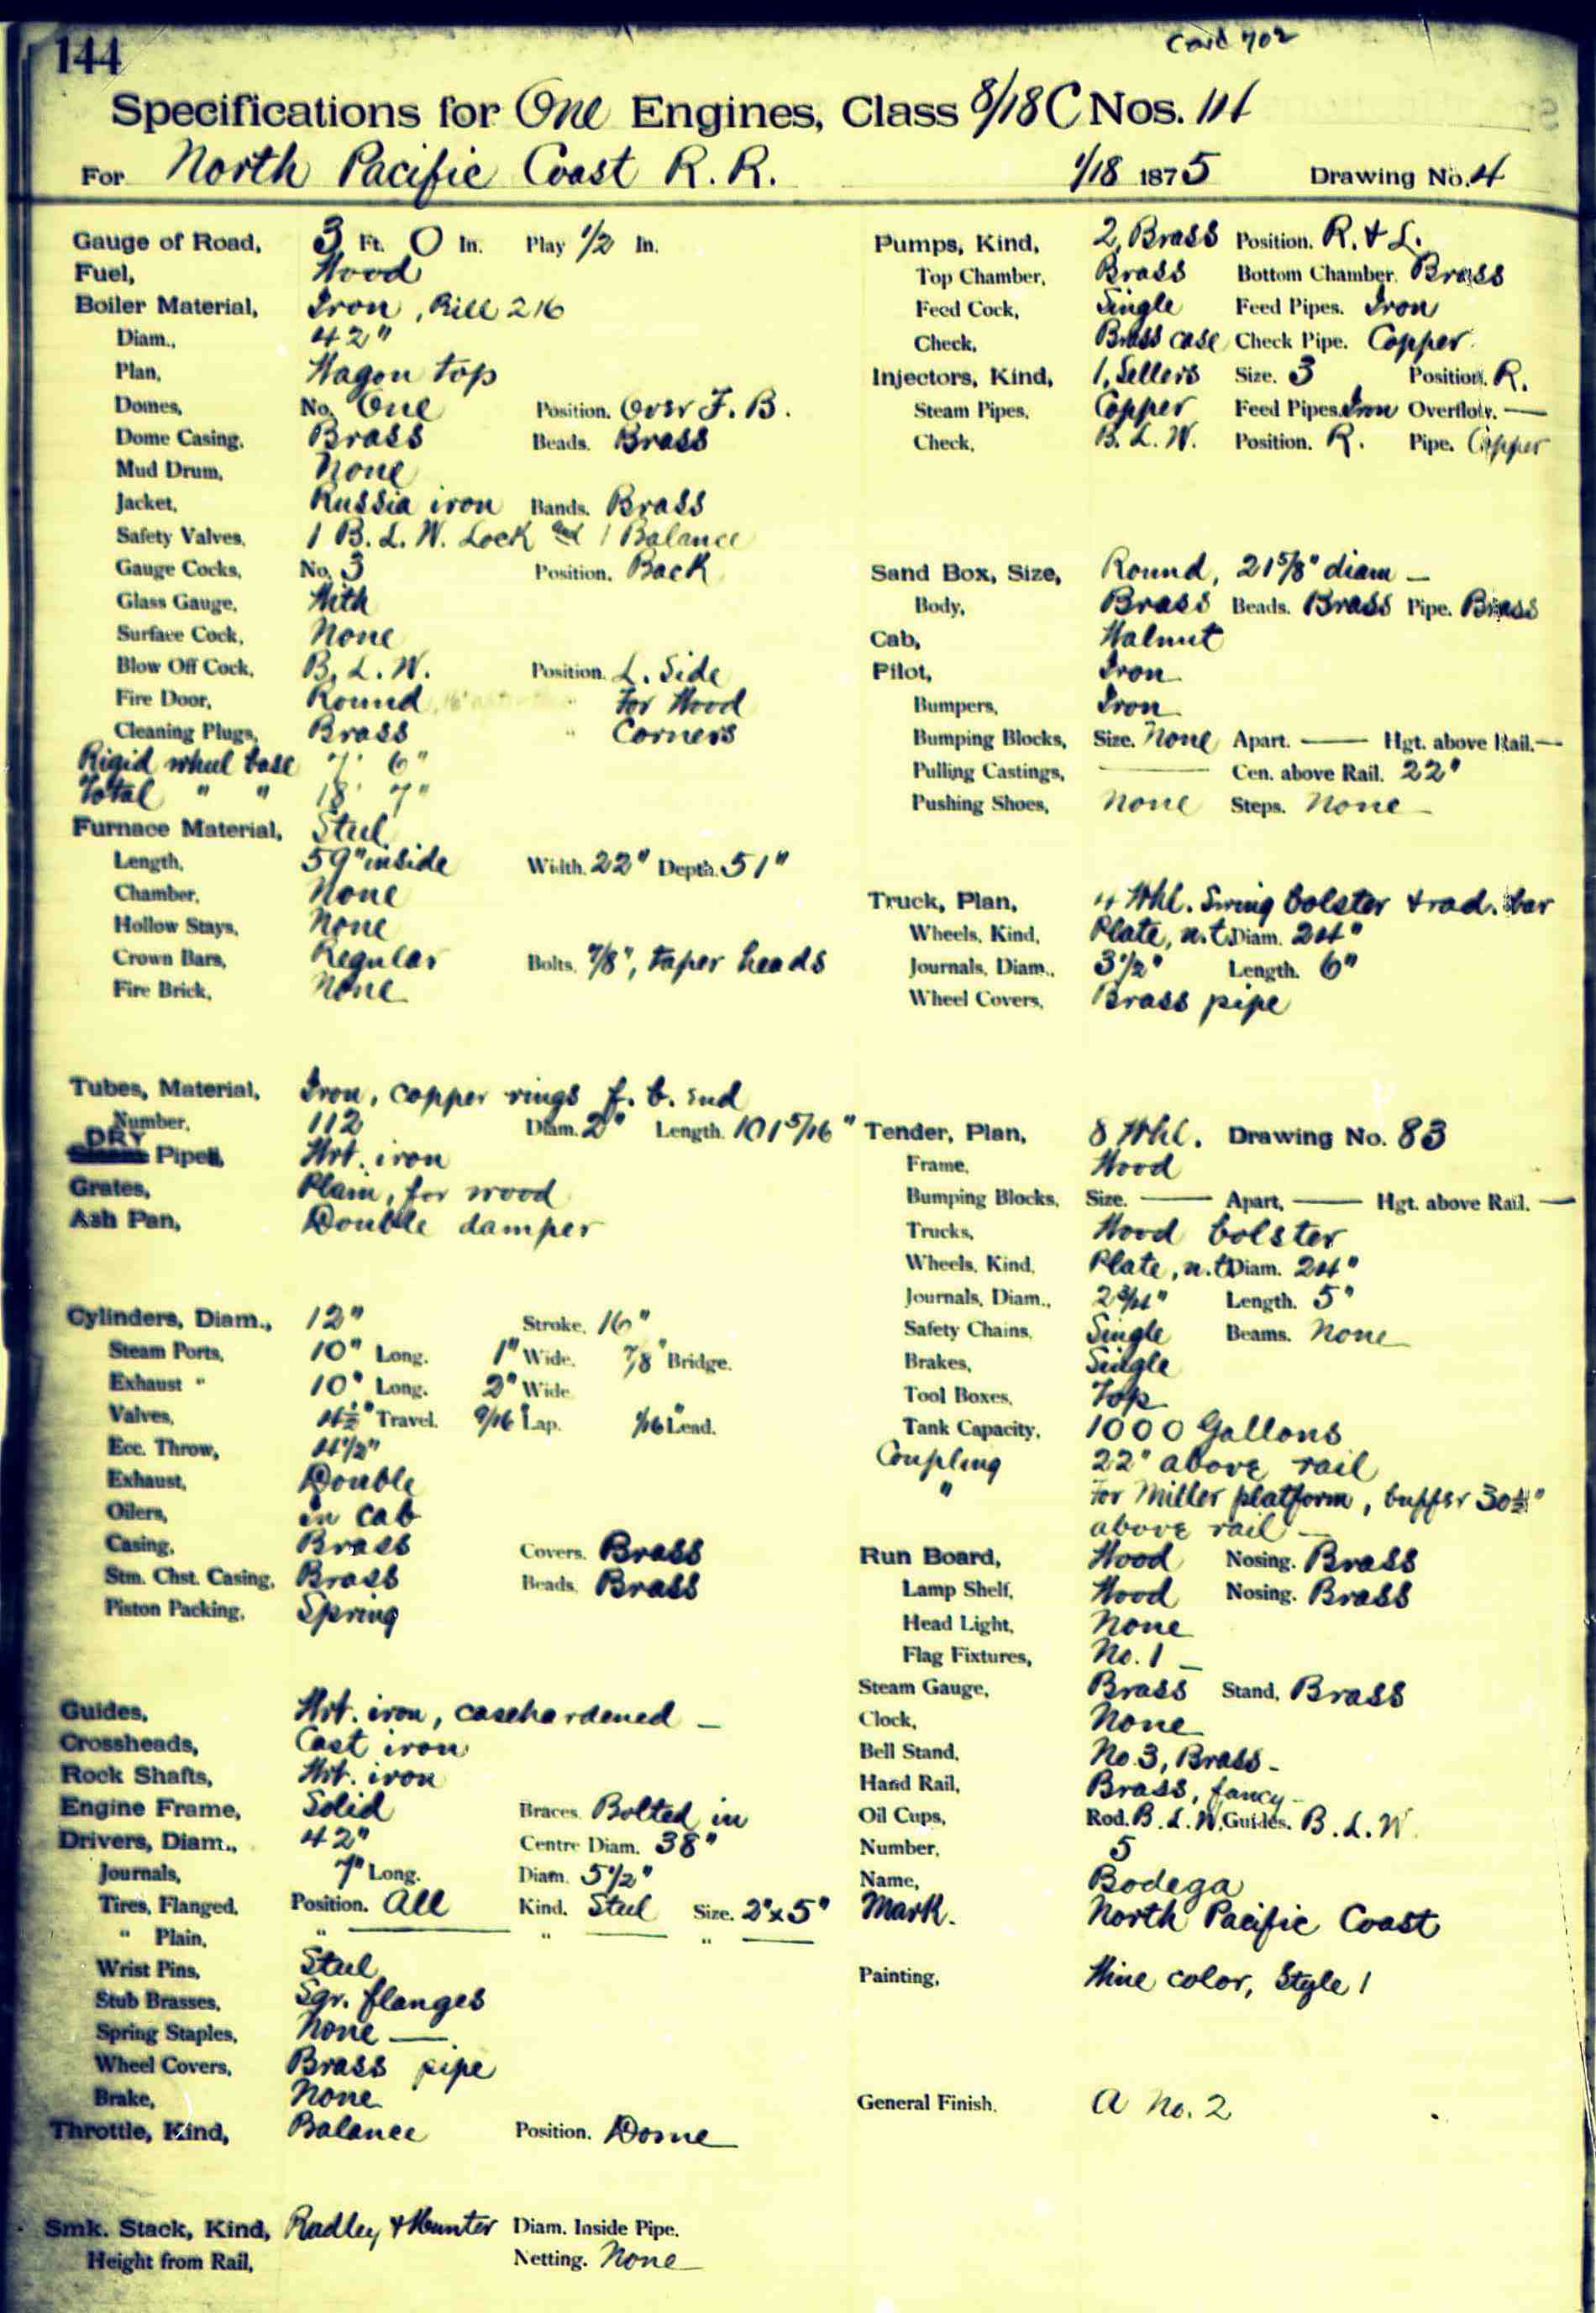 144
Card 702
Specifications for One Engines, Class 8/18 C Nos. 114
For North Pacific Coast R. R. 1/18 1875 Drawing No. 4
Gauge of Road, 3 Ft. 0 In. Play 1/2 In.
Fuel, Wood
Boiler Material, Iron, Bill 216
Diam., 42"
Plan, Wagon top
Domes, No. One Position. Over F. B.
Dome Casing, Brass Beads. Brass
Mud Drum, None
Jacket, Russia iron Bands. Brass
Safety Valves, 1 B. L. W. Lock and 1 Balance
Gauge Cocks, No. 3 Position. Back
Glass Gauge, With
Surface Cock, None
Blow Off Cock, B. L. W. Position. L. Side
Fire Door, Round " For Wood
Cleaning Plugs, Brass " Corners
Rigid wheel base 7' 6"
Total " " 18' 7"
Furnace Material, Steel
Length, 59" inside Width. 22" Depth. 51"
Chamber, None
Hollow Stays, None
Crown Bars, Regular Bolts. 7/8", taper heads
Fire Brick, None
Tubes, Material, Iron, copper rings f. b. end
Number, 112 Diam. 2" Length. 101 5/16"
DRY Pipe, Wrt. iron
Grates, Plain, for wood
Ash Pan, Double damper
Cylinders, Diam., 12" Stroke. 16"
Steam Ports, 10" Long. 1" Wide. 7/8" Bridge.
Exhaust " 10" Long. 2" Wide
Valves, 4 1/2" Travel. 9/16" Lap. 1/16" Lead.
Ecc. Throw, 4 1/2"
Exhaust, Double
Oilers, in cab
Casing, Brass Covers. Brass
Stm. Chst. Casing, Brass Beads. Brass
Piston Packing, Spring
Guides, Wrt. iron, casehardened —
Crossheads, Cast iron
Rock Shafts, Wrt. iron
Engine Frame, Solid Braces. Bolted in
Drivers, Diam., 42" Centre Diam. 38"
Journals, 7" Long. Diam. 5 1/2"
Tires, Flanged, Position. All Kind. Steel Size. 2" x 5"
" Plain, " — " — " —
Wrist Pins, Steel
Stub Brasses, Sqr. flanges
Spring Staples, None —
Wheel Covers, Brass pipe
Brake, None
Throttle, Kind, Balance Position. Dome
Smk. Stack, Kind, Radley & Hunter Diam. Inside Pipe.
Height from Rail, Netting. None
Pumps, Kind, 2, Brass Position. R. & L.
Top Chamber, Brass Bottom Chamber. Brass
Feed Cock, Single Feed Pipes. Iron
Check, Brass case Check Pipe. Copper
Injectors, Kind, 1, Sellers Size. 3 Position. R.
Steam Pipes, Copper Feed Pipes. Iron Overflow. —
Check, B. L. W. Position. R. Pipe. Copper
Sand Box, Size, Round, 21 5/8" diam —
Body, Brass Beads. Brass Pipe. Brass
Cab, Walnut
Pilot, Iron
Bumpers, Iron
Bumping Blocks, Size. None Apart. — Hgt. above Rail. —
Pulling Castings, — Cen. above Rail. 22"
Pushing Shoes, None Steps. None —
Truck, Plan, 4 Whl. Swing bolster & rad. bar
Wheels, Kind, Plate, n.t. Diam. 24"
Journals, Diam., 3 1/2" Length. 6"
Wheel Covers, Brass pipe
Tender, Plan, 8 Whl. Drawing No. 83
Frame, Wood
Bumping Blocks, Size. — Apart, — Hgt. above Rail. —
Trucks, Wood bolster
Wheels, Kind, Plate, n.t. Diam. 24"
Journals, Diam., 2 3/4" Length. 5"
Safety Chains, Single Beams. None
Brakes, Single
Tool Boxes, Top
Tank Capacity, 1000 Gallons
Coupling 22" above rail
" For Miller platform, buffer 30 1/2"
above rail —
Run Board, Wood Nosing. Brass
Lamp Shelf, Wood Nosing. Brass
Head Light, None
Flag Fixtures, No. 1 —
Steam Gauge, Brass Stand, Brass
Clock, None
Bell Stand, No. 3, Brass —
Hand Rail, Brass, fancy —
Oil Cups, Rod. B. L. W. Guides. B. L. W.
Number, 5
Name, Bodega
Mark. North Pacific Coast
Painting, Wine color, Style 1
General Finish, A No. 2